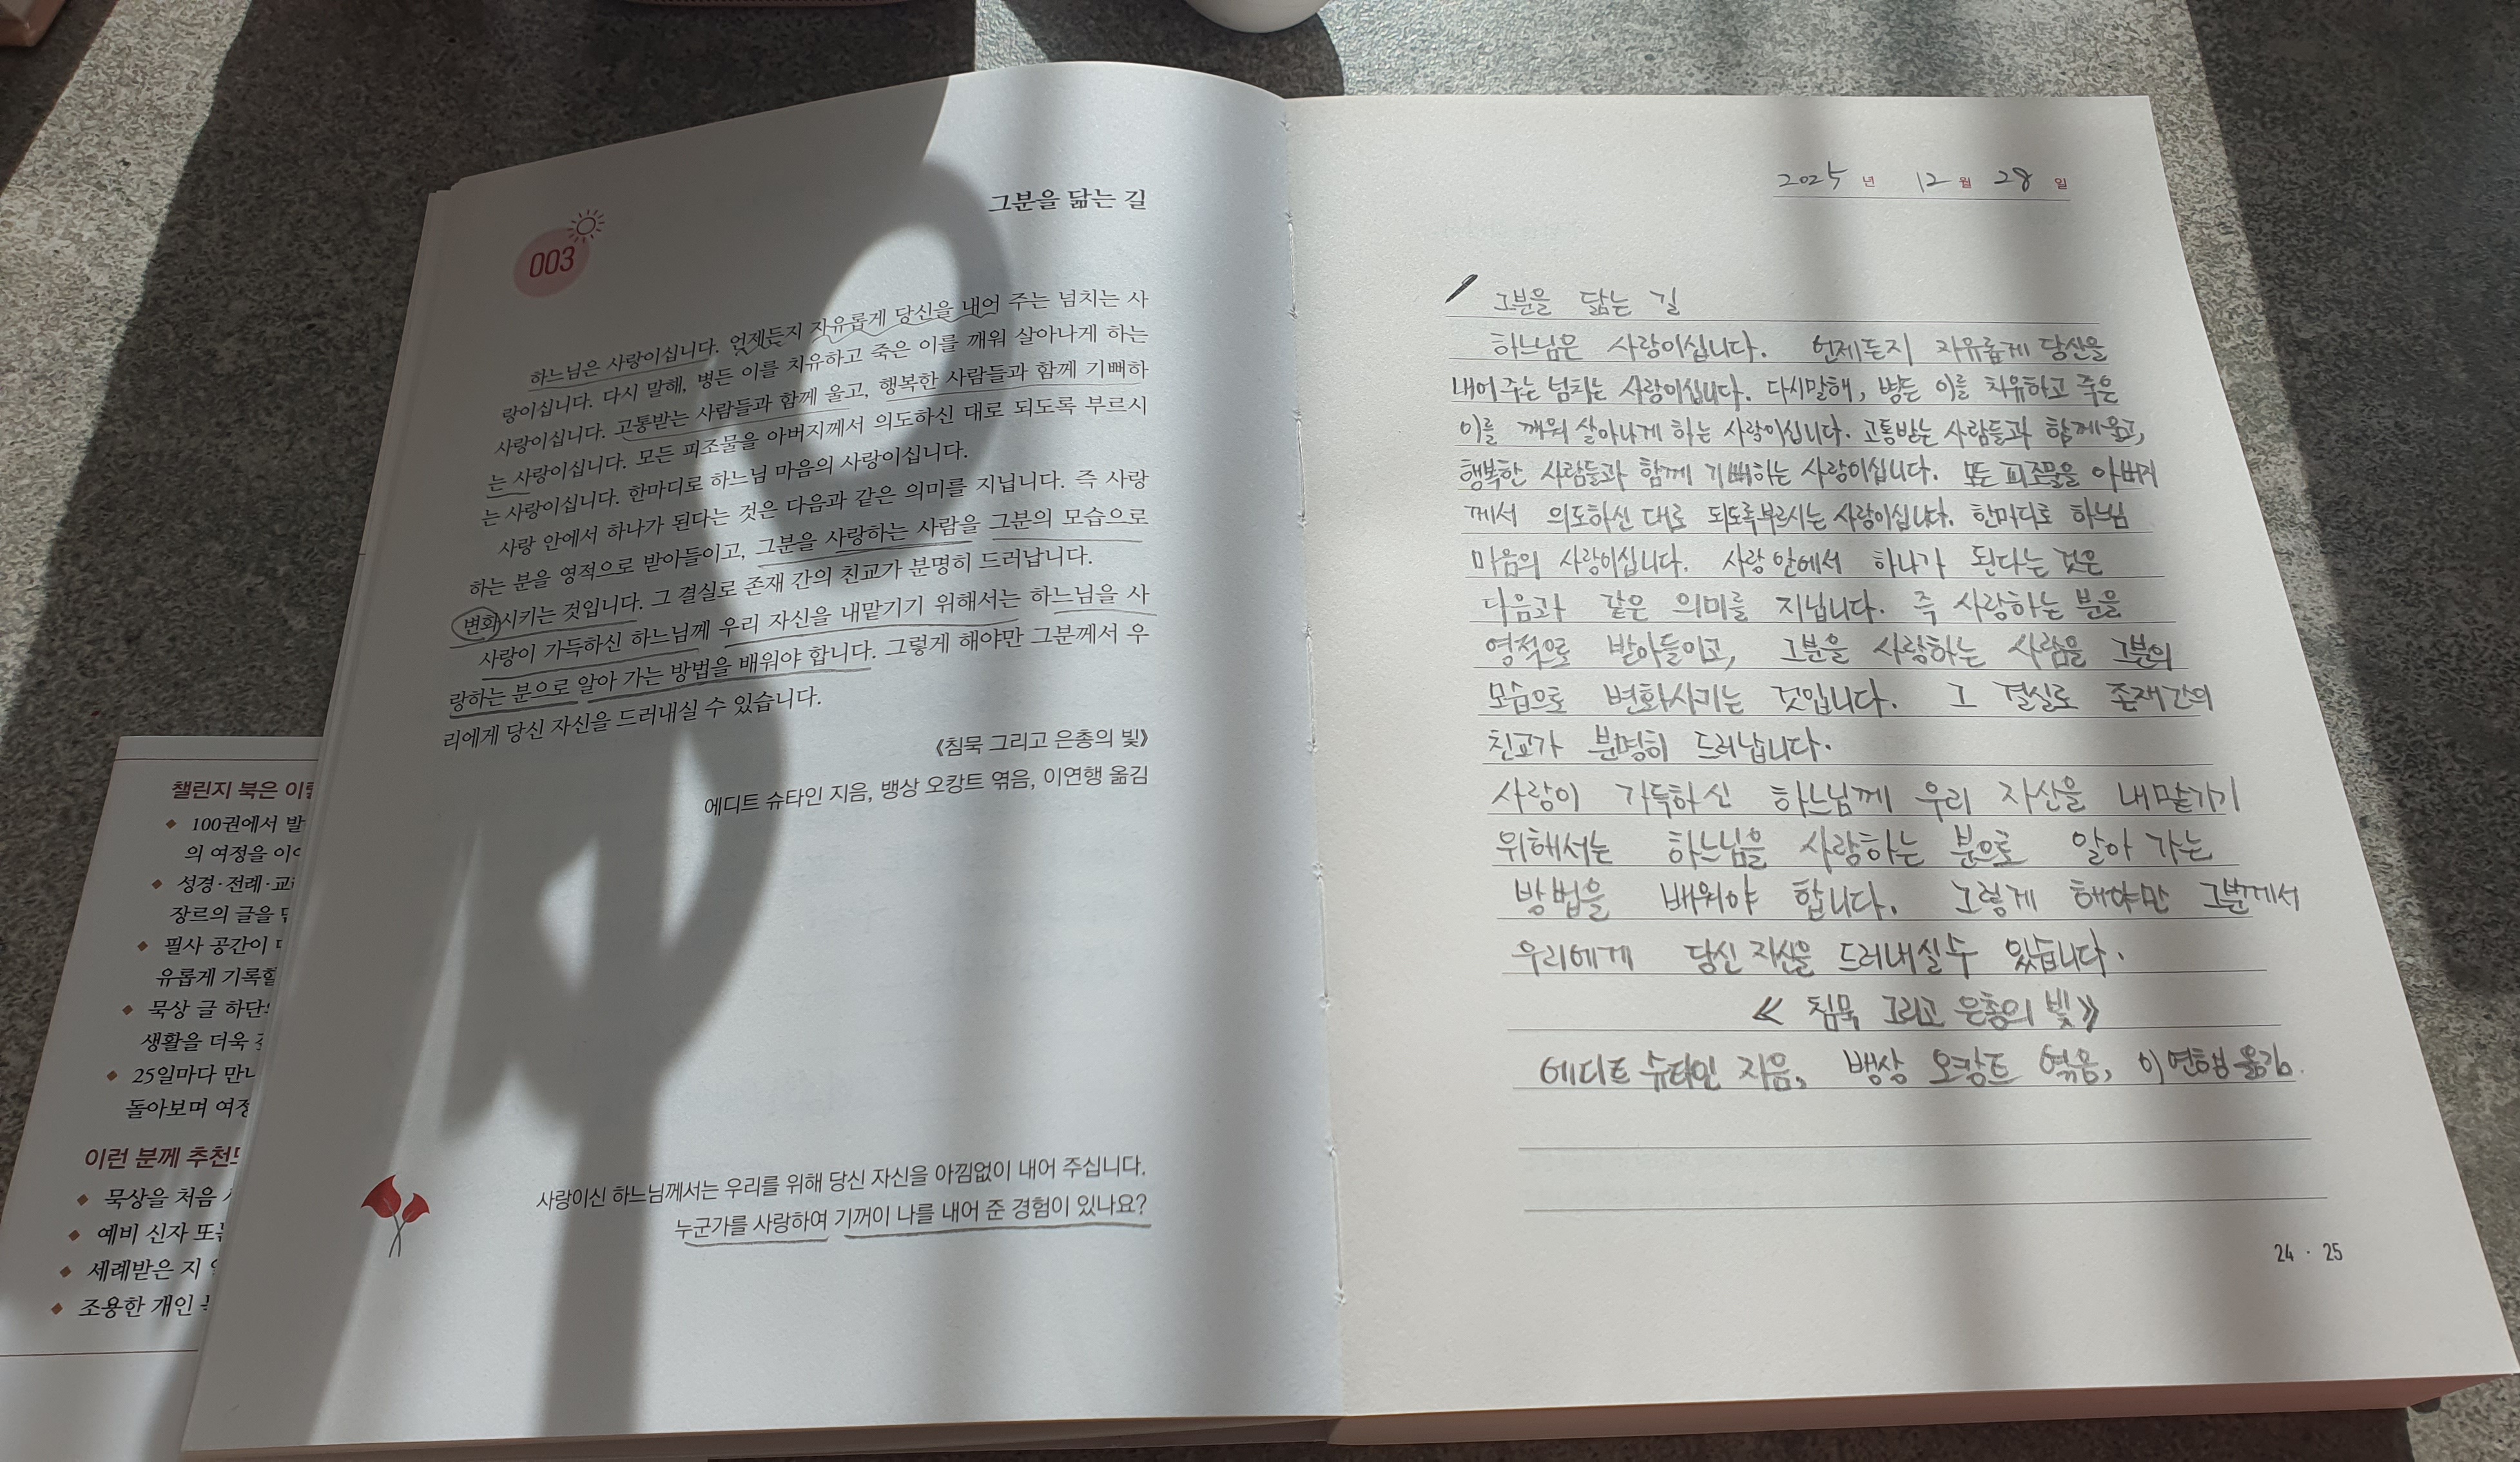 그분을 닮는 길
003
하느님은 사랑이십니다. 언제든지 자유롭게 당신을 내어 주는 넘치는 사
랑이십니다. 다시 말해, 병든 이를 치유하고 죽은 이를 깨워 살아나게 하는
사랑이십니다. 고통받는 사람들과 함께 울고, 행복한 사람들과 함께 기뻐하
는 사랑이십니다. 모든 피조물을 아버지께서 의도하신 대로 되도록 부르시
는 사랑이십니다. 한마디로 하느님 마음의 사랑이십니다.
사랑 안에서 하나가 된다는 것은 다음과 같은 의미를 지닙니다. 즉 사랑
하는 분을 영적으로 받아들이고, 그분을 사랑하는 사람을 그분의 모습으로
변화시키는 것입니다. 그 결실로 존재 간의 친교가 분명히 드러납니다.
사랑이 가득하신 하느님께 우리 자신을 내맡기기 위해서는 하느님을 사
랑하는 분으로 알아 가는 방법을 배워야 합니다. 그렇게 해야만 그분께서 우
리에게 당신 자신을 드러내실 수 있습니다.
《침묵 그리고 은총의 빛》
에디트 슈타인 지음, 뱅상 오캉트 엮음, 이연행 옮김
사랑이신 하느님께서는 우리를 위해 당신 자신을 아낌없이 내어 주십니다.
누군가를 사랑하여 기꺼이 나를 내어 준 경험이 있나요?
2025 년 12 월 28 일
그분을 닮는 길
하느님은 사랑이십니다. 언제든지 자유롭게 당신을
내어 주는 넘치는 사랑이십니다. 다시말해, 병든 이를 치유하고 죽은
이를 깨워 살아나게 하는 사랑이십니다. 고통받는 사람들과 함께 울고,
행복한 사람들과 함께 기뻐하는 사랑이십니다. 모든 피조물을 아버지
께서 의도하신 대로 되도록부르시는 사랑이십니다. 한마디로 하느님
마음의 사랑이십니다. 사랑 안에서 하나가 된다는 것은
다음과 같은 의미를 지닙니다. 즉 사랑하는 분을
영적으로 받아들이고, 그분을 사랑하는 사람을 그분의
모습으로 변화시키는 것입니다. 그 결실로 존재간의
친교가 분명히 드러납니다.
사랑이 가득하신 하느님께 우리 자신을 내맡기기
위해서는 하느님을 사랑하는 분으로 알아 가는
방법을 배워야 합니다. 그렇게 해야만 그분께서
우리에게 당신 자신을 드러내실수 있습니다.
《 침묵 그리고 은총의 빛》
에디트 슈타인 지음, 뱅상 오캉트 엮음, 이연행 옮김.
24 · 25
챌린지 북은
100권에서
의 여정을
성경·전례·
장르의 글을
필사 공간이
유롭게
묵상 글
생활을 더욱
25일마다
돌아보며
이런 분께
묵상을 처음
예비 신자
세례받은 지
조용한 개인